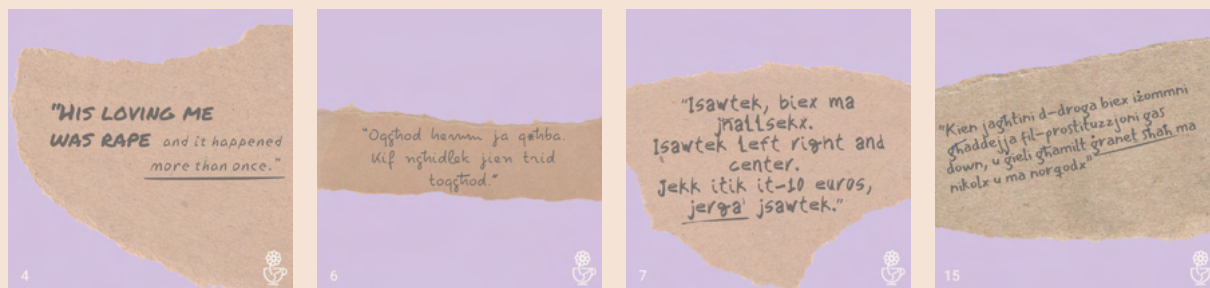 "HIS LOVING ME
WAS RAPE and it happened
more than once."
4
"Oqgħod hemm ja qaħba.
Kif ngħidlek jien trid
toqgħod."
6
"Isawtek, biex ma
jħallsekx.
Isawtek left right and
center.
Jekk itik it-10 euros,
jerġa' jsawtek."
7
"Kien jagħtini d-droga biex iżommni
għaddejja fil-prostituzzjoni gas
down, u ġieli għamilt ġranet sħaħ ma
nikolx u ma norqodx"
15